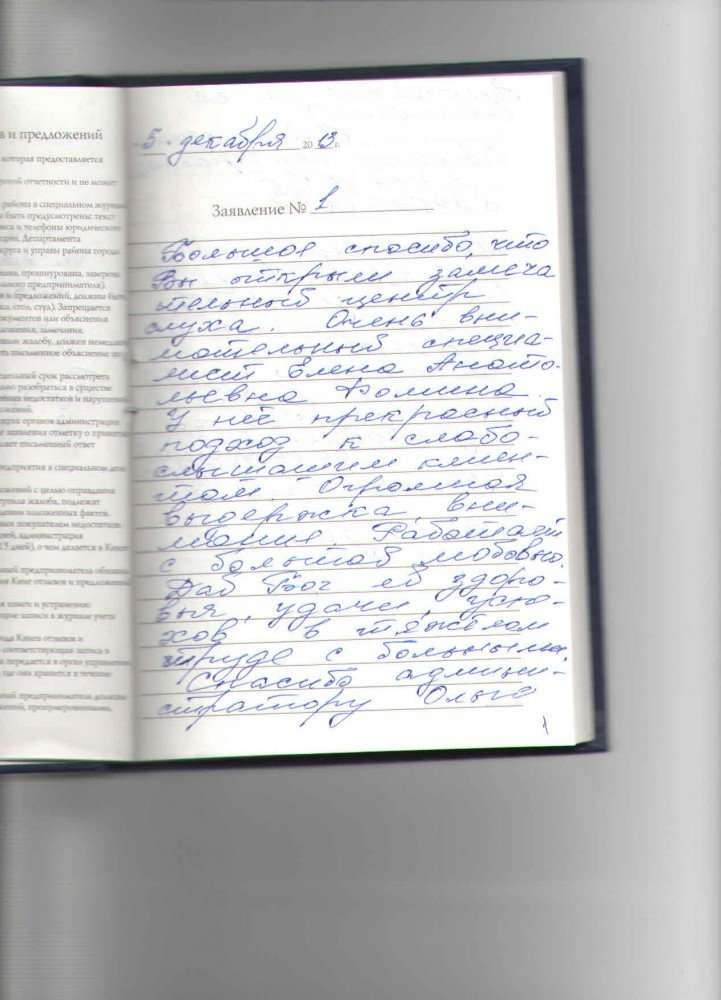 в и предложений
которая предоставляется
отчетности и не может
района в специальном журнале
быть предусмотрены: текст
и телефоны юридического
Департамента
округа и управы района города
прошнурована, заверена
предпринимателя).
и предложений, должна быть
стол, стул). Запрещается
документов или объяснения
замечания.
жалобу, должен немедленно
письменное объяснение
срок рассмотреть
разобраться в существе
недостатков и нарушений
органов администрации
заявления отметку о принятых
письменный ответ
предприятия в специальном
с целью оправдания
жалоба, подлежит
изложенных фактов.
покупателем недостатков
администрация
15 дней), о чем делается в Книге
предпринимателя обязаны
Книге отзывов и предложений
книги и устранению
записи в журнале учета
Книга отзывов и
соответствующая запись в
передается в орган управления
где она хранится в течение
предпринимателя должны
5 декабря 2013 г.
Заявление № 1
Большое спасибо, что
Вы открыли замеча
тельный центр
слуха. Очень вни-
мательный специа-
лист Елена Анато-
льевна Фомина.
У неё прекрасный
подход к слабо-
слышащим клиен-
там. Огромная
выдержка, вни-
мания. Работает
с большой любовью.
Дай Бог ей здоро-
вья, удачи, успе-
хов в тяжёлом
труде с больными.
Спасибо админи-
стратору Ольге
1